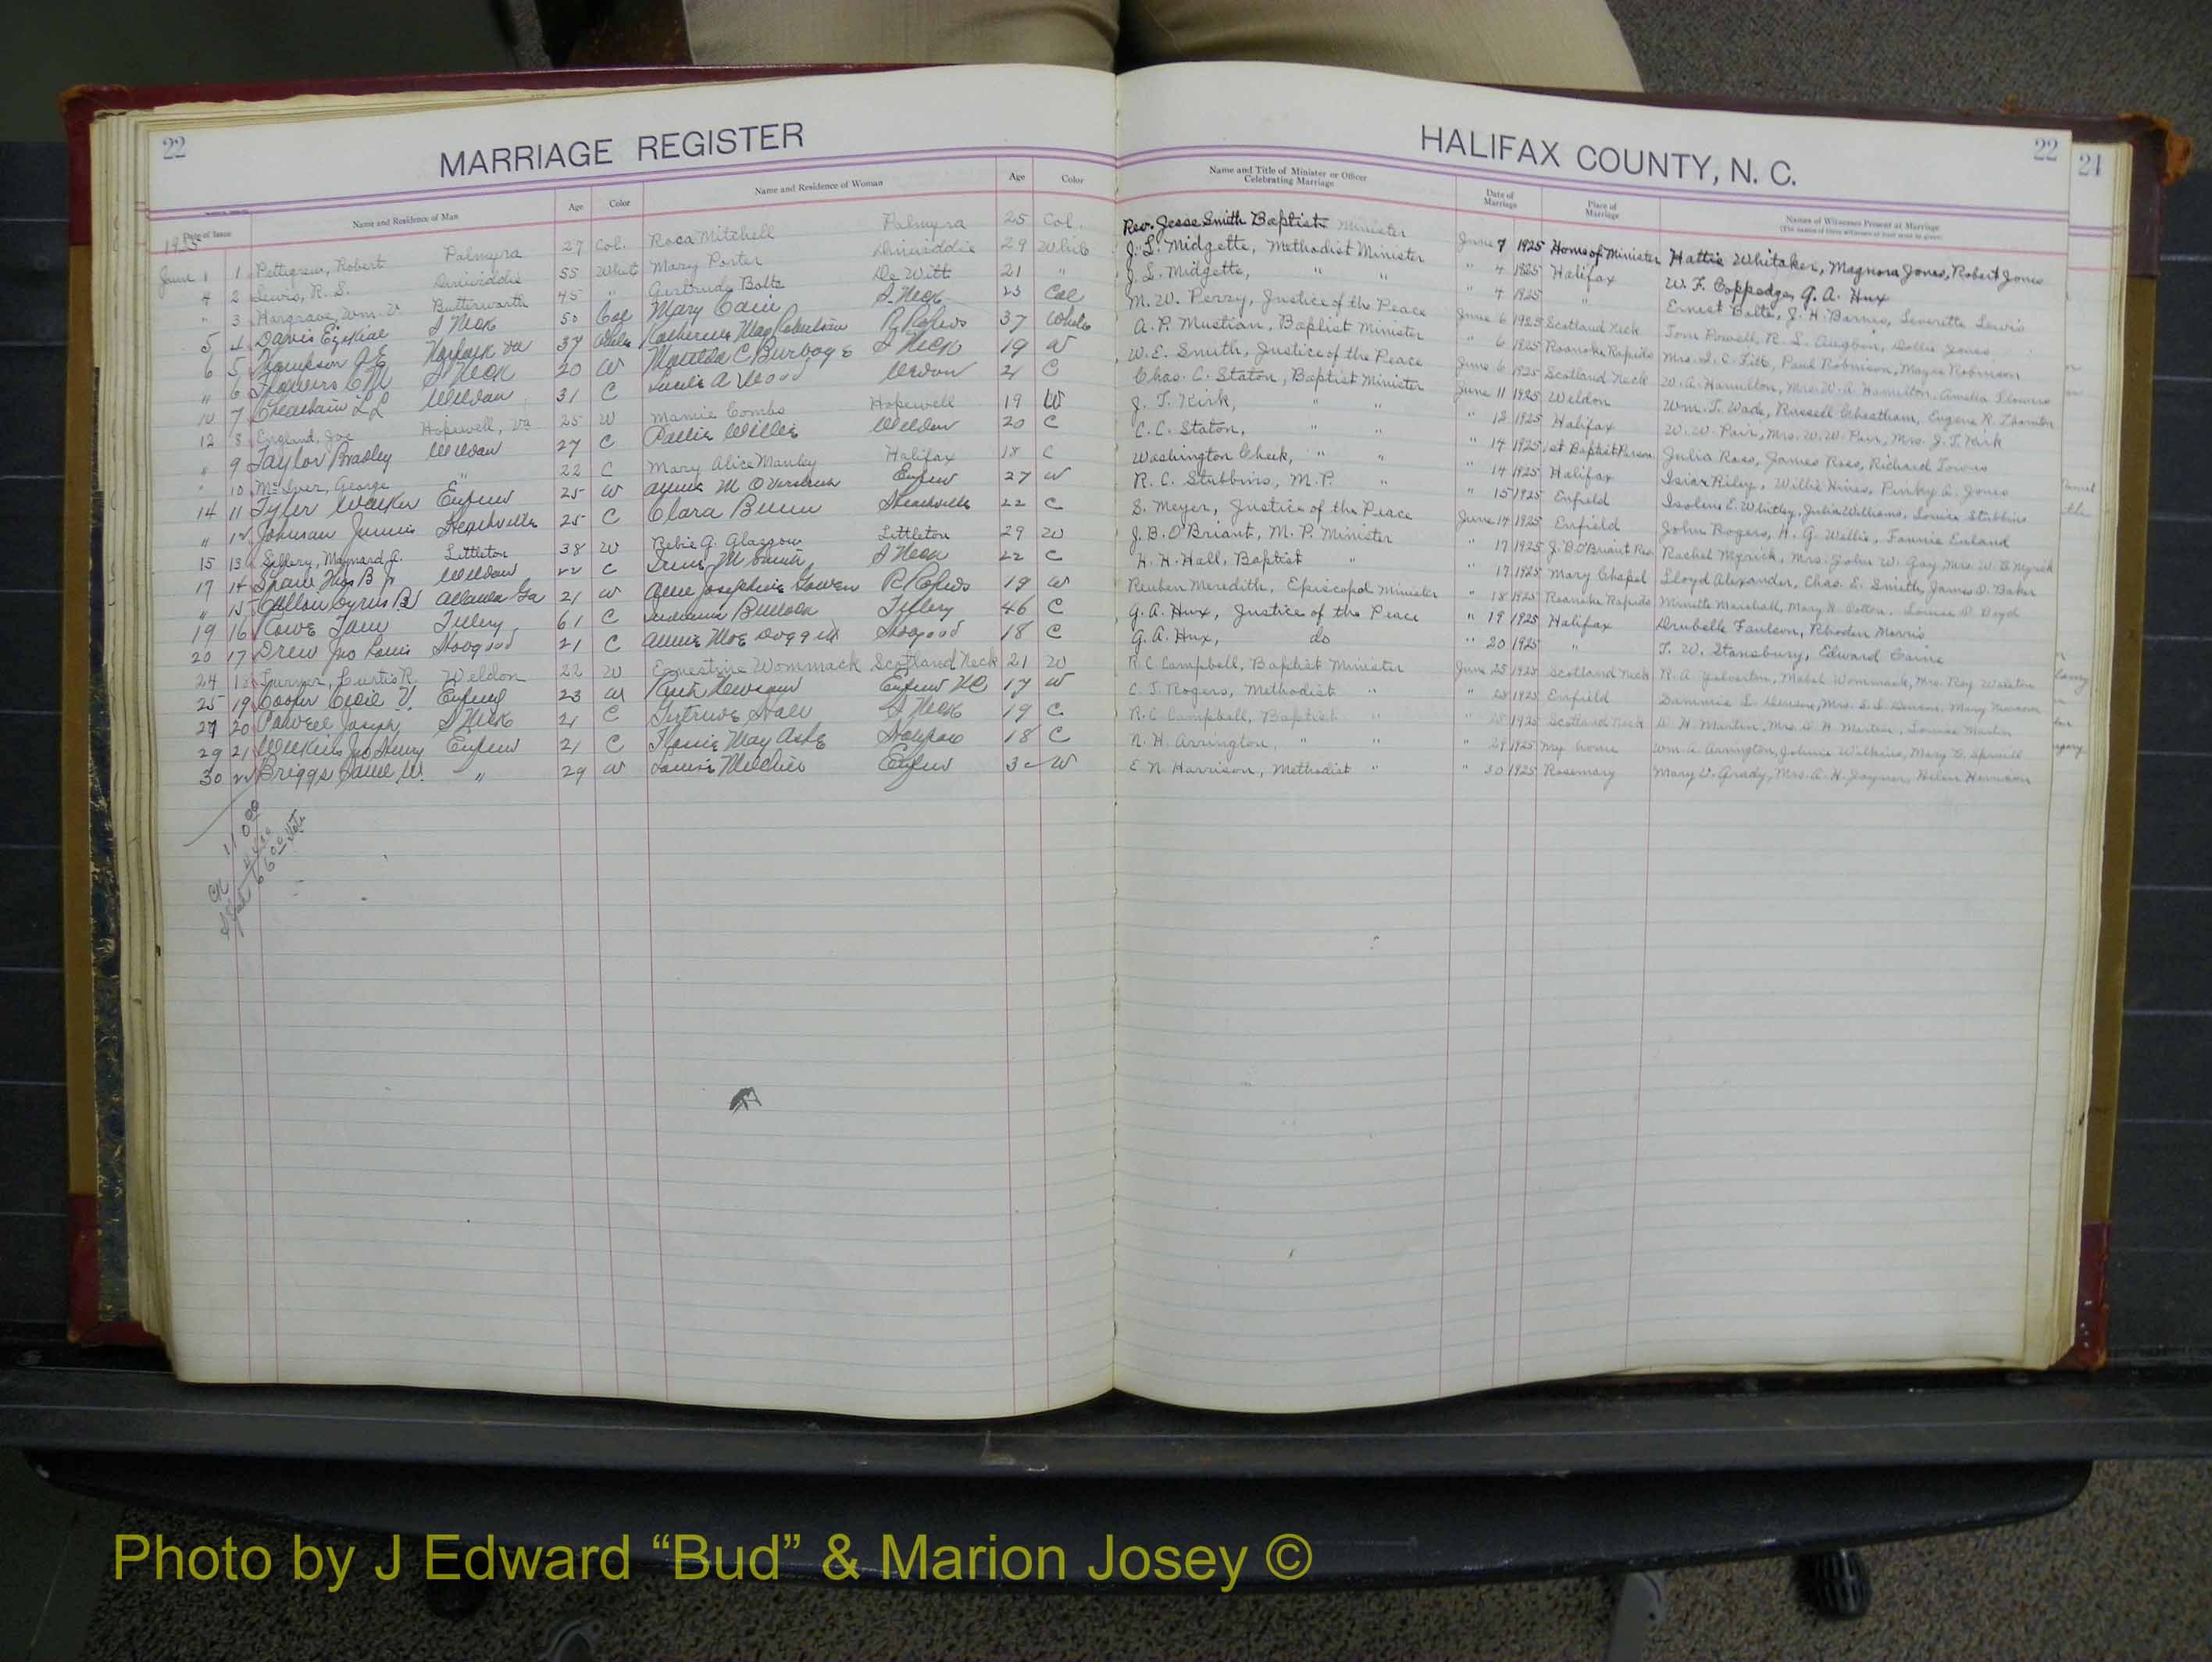 22
MARRIAGE REGISTER
HALIFAX COUNTY, N. C.
22
21
Date of Issue
Name and Residence of Man
Age
Color
Name and Residence of Woman
Age
Color
Name and Title of Minister or Officer
Celebrating Marriage
Date of
Marriage
Place of
Marriage
Names of Witnesses Present at Marriage
1925
June 1 1 Pettigrew, Robert Palmyra 27 Col. Roca Mitchell Palmyra 25 Col. Rev. Jesse Smith Baptist Minister June 7 1925 Home of Minister Hattie Whitaker, Magnora Jones, Robert Jones
4 2 Lewis, R. S. Dinwiddie 55 Whit Mary Porter Dinwiddie 29 White J. L. Midgette, Methodist Minister " 4 1925 Halifax W. F. Coppedge, G. A. Hux
" 3 Hargrave, Wm. V. Butterworth 45 " Gertrude Bolte De Witt 21 " J. L. Midgette, " " " 4 1925 " Ernest Bolte, J. H. Barnes, Leverette Lewis
5 4 Davis Ezekiel S Neck 50 Col Mary Cain S. Neck 23 Col M. W. Perry, Justice of the Peace June 6 1925 Scotland Neck Tom Powell, R. S. Dollie Jones
6 5 Thompson J E Norfolk Va 37 White Katherine May Robertson R. Rapids 37 White A. P. Mustian, Baptist Minister " 6 1925 Roanoke Rapids Mrs. S. C. Paul Robinson, Robinson
" 6 Flowers S Neck 20 W Matilda C Burbage S Neck 19 W W. E. Smith, Justice of the Peace June 6 1925 Scotland Neck W. A. Hamilton, Mrs. W. A. Hamilton, Amelia Flowers
10 7 Cheatham L L Weldon 31 C A Wood Weldon 21 C Chas. C. Staton, Baptist Minister June 11 1925 Weldon Wm. T. Wade, Russell Cheatham, Eugene R. Thornton
12 8 England, Joe Hopewell, Va 25 W Mamie Combs Hopewell 19 W J. T. Kirk, " " " 12 1925 Halifax W. W. Pair, Mrs. W. W. Pair, Mrs. J. T. Kirk
" 9 Taylor Bradley Weldon 27 C Pattie Willis Weldon 20 C C. C. Staton, " " " 14 1925 1st Baptist Parson Julia Ross, James Ross, Richard
" 10 McIver, George " 22 C Mary Alice Manley Halifax 18 C Washington Cheek, " " " 14 1925 Halifax Isiar Riley, Willie Hines, Pinky A. Jones
14 11 Tyler Walker Enfield 25 W Annie M Enfield 27 W R. C. Stubbins, M. P. " " 15 1925 Enfield Isolene E. Whitley, Julia Williams, Louise Stubbins
" 12 Johnson Junius Heathville 25 C Clara Bunn Heathville 22 C S. Meyer, Justice of the Peace June 14 1925 Enfield John Rogers, H. G. Willis, Fannie
15 13 Maynard G. Littleton 38 W Bebie G. Glasgow Littleton 29 W J. B. O'Briant, M. P. Minister " 17 1925 J. B. O'Briant Res. Rachel Myrick, Mrs. John W. Gay, Mrs. W. B. Myrick
17 14 Thos B Weldon 22 C M Smith S Neck 22 C H. H. Hall, Baptist " " 17 1925 Mary Chapel Lloyd Alexander, Chas. E. Smith, James D. Baker
" 15 Cyrus B Atlanta Ga 21 W Annie Josephine R. Rapids 19 W Reuben Meredith, Episcopal Minister " 18 1925 Roanoke Rapids Minette Marshall, Mary H. Cotton, Louise D. Boyd
19 16 Rowe Tillery 61 C Bullock Tillery 46 C G. A. Hux, Justice of the Peace " 19 1925 Halifax Drubelle Faulcon, Rhoden Morris
20 17 Drew Jno Louis Hobgood 21 C Annie Mae Hobgood 18 C G. A. Hux, do " 20 1925 " T. W. Stansbury, Edward
24 18 Turner, Curtis R. Weldon 22 W Ernestine Wommack Scotland Neck 21 W R. C. Campbell, Baptist Minister June 25 1925 Scotland Neck R. A. Mabel Wommack, Mrs. Roy
25 19 Cooper V. Enfield 23 W Ruth Enfield NC 17 W C. T. Rogers, Methodist " " 28 1925 Enfield
27 20 Powell Joseph S Neck 21 C Gertrude S Neck 19 C R. C. Campbell, Baptist " " 28 1925 Scotland Neck W. H. Martin, Mrs. W. H. Martin, Louise Martin
29 21 Wilkins Jno Henry Enfield 21 C May Halifax 18 C N. H. Arrington, " " " 29 1925 My home Wm. A. Arrington, Johnie Wilkins, Mary D. Spruill
30 22 Briggs W. " 29 W Louise Enfield 30 W E. N. Harrison, Methodist " " 30 1925 Rosemary Mary V. Grady, Mrs. A. H. Joyner, Helen Harrison
Photo by J Edward “Bud” & Marion Josey ©